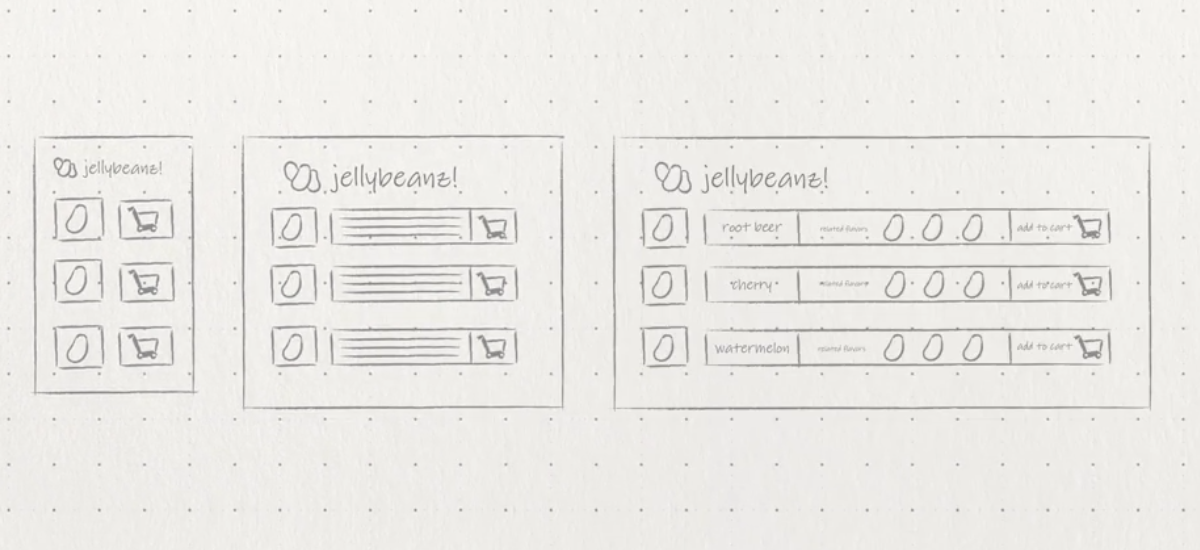 jellybeanz!
jellybeanz!
jellybeanz!
root beer related flavors add to cart
cherry related flavors add to cart
watermelon related flavors add to cart